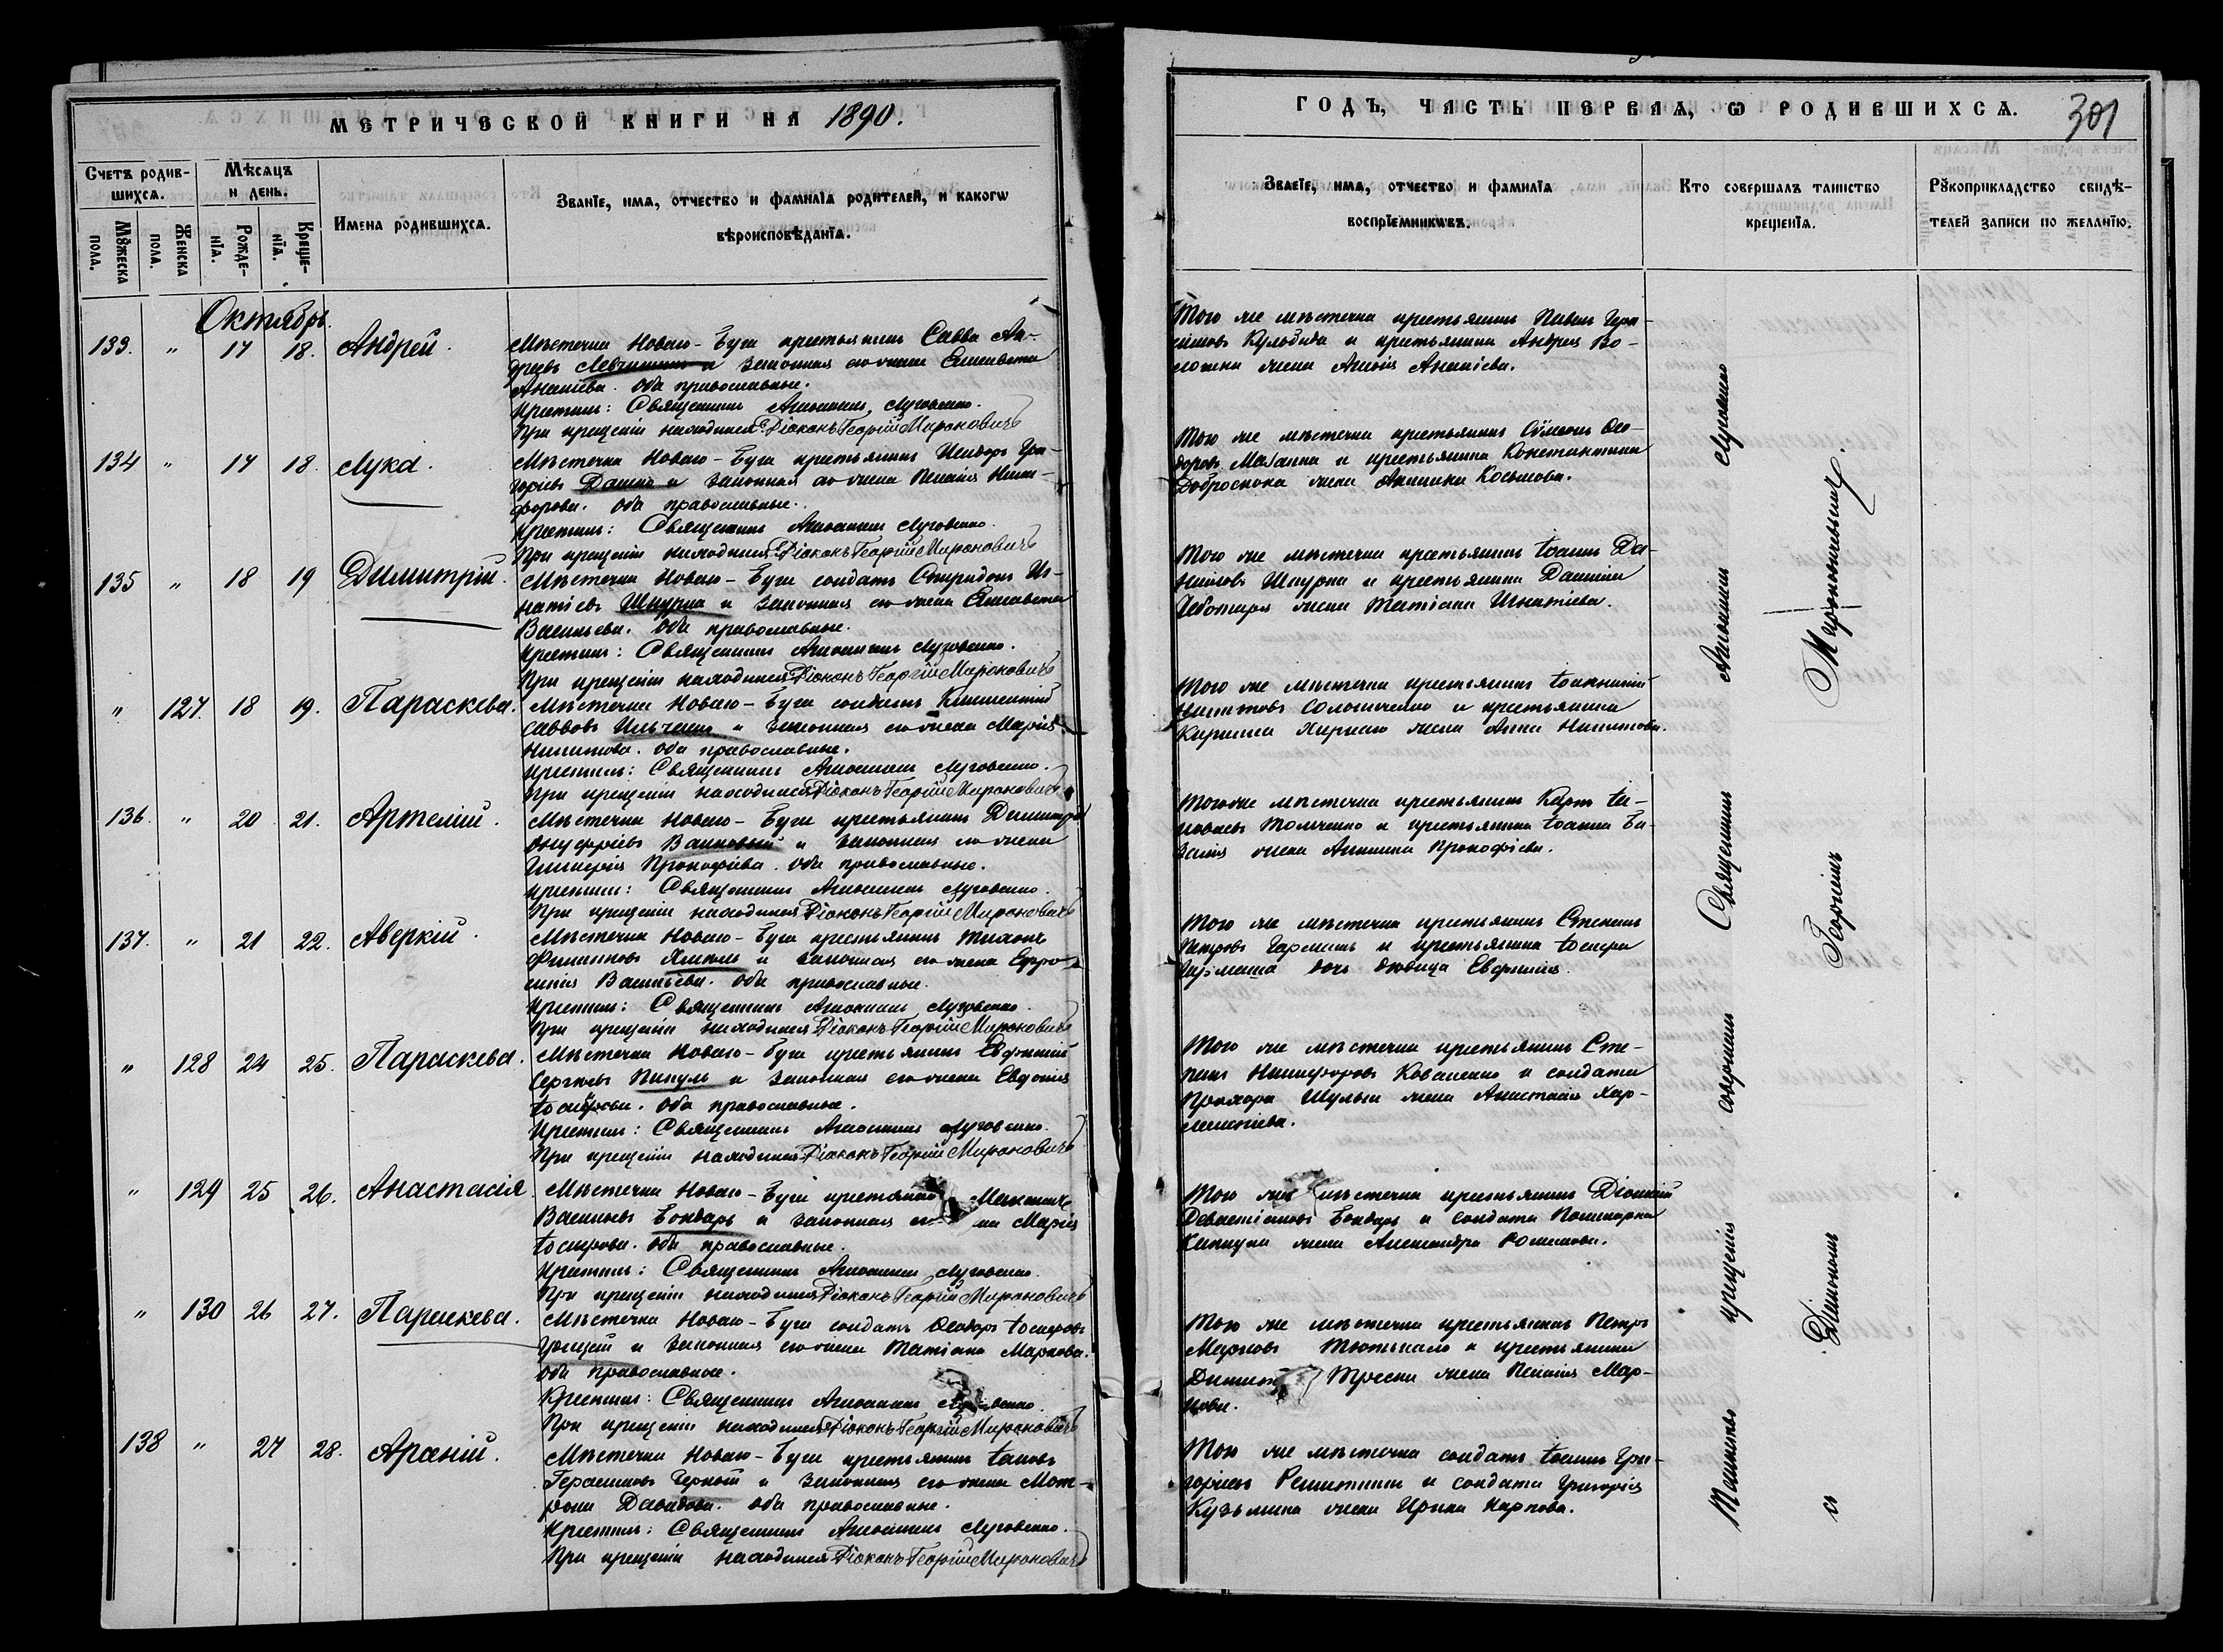 МЕТРИЧЕСКОЙ КНИГИ НА 1890.
Счетъ родив-
шихсѧ.
Мѣсяцъ
и день.
Имена родившихсѧ.
Званїе, имѧ, отчество и фамилїѧ родителей, и какогѡ
вѣроисповѣданїѧ.
Мꙋжеска
пола.
Женска
пола.
Рожде-
нїѧ.
Креще-
нїѧ.
Октябрь.
133. " 17 18. Андрей.
Мѣстечка Новаго-Буга крестьянинъ Савва Ан-
дреевъ и законная его жена Елисавета
Ананіева. Оба православные.
Крестилъ: Священникъ Луговенко.
При крещеніи находился Діаконъ Георгій Мироновичъ
134 " 17 18. Лука.
Мѣстечка Новаго-Буга крестьянинъ Исидоръ Гри-
горіевъ Дашко и законная его жена Пелагія Ники-
форова. Оба православные.
Крестилъ: Священникъ Луговенко.
При крещеніи находился Діаконъ Георгій Мироновичъ
135 " 18 19 Димитрій.
Мѣстечка Новаго-Буга солдатъ Спиридонъ Иг-
натіевъ Шкурка и законная его жена Елисавета
Васильева. Оба православные.
Крестилъ: Священникъ Луговенко.
При крещеніи находился Діаконъ Георгій Мироновичъ
" 127. 18 19. Параскева.
Мѣстечка Новаго-Буга солдатъ
Саввовъ Ильченко и законная его жена Марія
Никитова. Оба православные.
Крестилъ: Священникъ Луговенко.
При крещеніи находился Діаконъ Георгій Мироновичъ
136. " 20 21. Артемій.
Мѣстечка Новаго-Буга крестьянинъ Димитрій
Онуфріевъ и законная его жена
Гликерія Прокофіева. Оба православные.
Крестилъ: Священникъ Луговенко.
При крещеніи находился Діаконъ Георгій Мироновичъ
137. " 21 22. Аверкій.
Мѣстечка Новаго-Буга крестьянинъ Тихонъ
Филиповъ и законная его жена Евфро-
синія Васильева. Оба православные.
Крестилъ: Священникъ Луговенко.
При крещеніи находился Діаконъ Георгій Мироновичъ
" 128 24 25. Параскева.
Мѣстечка Новаго-Буга крестьянинъ Евфимій
Сергіевъ Пикуль и законная его жена Евдокія
Іосифова. Оба православные.
Крестилъ: Священникъ Луговенко.
При крещеніи находился Діаконъ Георгій Мироновичъ
" 129 25 26. Анастасія.
Мѣстечка Новаго-Буга крестьянинъ
Васильевъ Бондарь и законная его на Марія
Іосифова. Оба православные.
Крестилъ: Священникъ Луговенко.
При крещеніи находился Діаконъ Георгій Мироновичъ
" 130 26 27. Параскева.
Мѣстечка Новаго-Буга солдатъ Ѳеодоръ Іосифовъ
и законная его жена Татіана Маркова.
Оба православные.
Крестилъ: Священникъ
При крещеніи находился Діаконъ Георгій Мироновичъ
138 " 27 28. Арсеній.
Мѣстечка Новаго-Буга крестьянинъ Іаковъ
Герасимовъ Черный и законная его жена Мат-
рона Давидова. Оба православные.
Крестилъ: Священникъ Луговенко.
При крещеніи находился Діаконъ Георгій Мироновичъ
ГОДЪ, ЧАСТЬ ПЕРВАѦ, Ѡ РОДИВШИХСѦ. 301
Званїе, имѧ, отчество и фамилїѧ
воспрїемникѡвъ.
Кто совершалъ таинство
крещенїѧ.
Рꙋкоприкладство свидѣ-
телей записи по желанїю.
Того же мѣстечка крестьянинъ Павелъ Гера-
симовъ Кульбида и крестьянина Андрея Во-
лошина жена Ананіева.
Того же мѣстечка крестьянинъ Сѵмеонъ Ѳео-
доровъ и крестьянина Константина
Доброскока жена Акилина Косьмова.
Того же мѣстечка крестьянинъ Іоаннъ Да-
ниловъ Шкурка и крестьянина Даніила
Чеботаря жена Татіана Игнатіева.
Того же мѣстечка крестьянинъ Іоанникій
Никитовъ и крестьянина
Кирилла жена Анна Никитова.
Того же мѣстечка крестьянинъ Карпъ Іа-
кововъ Толмченко и крестьянина Іоанна
жена Акилина Прокофіева.
Того же мѣстечка крестьянинъ Стефанъ
Петровъ и крестьянина Іосифа
дочь дѣвица Евфимія.
Того же мѣстечка крестьянинъ Сте-
фанъ Никифоровъ Коваленко и солдата
Прохора Шульги жена Анастасія Хар-
лампіева.
Того же мѣстечка крестьянинъ Діонисій
Севастіановъ Бондарь и солдата Поликарпа
жена Александра
Того же мѣстечка крестьянинъ Петръ
Марковъ и крестьянина
жена Пелагія Мар-
кова.
Того же мѣстечка солдатъ Іоаннъ Гри-
горіевъ и солдата Григорія
Кузьмина жена Ирина Карпова.
Таинство крещенія совершилъ Священникъ Луговенко
съ Діакономъ Георгіемъ Мироновичемъ.